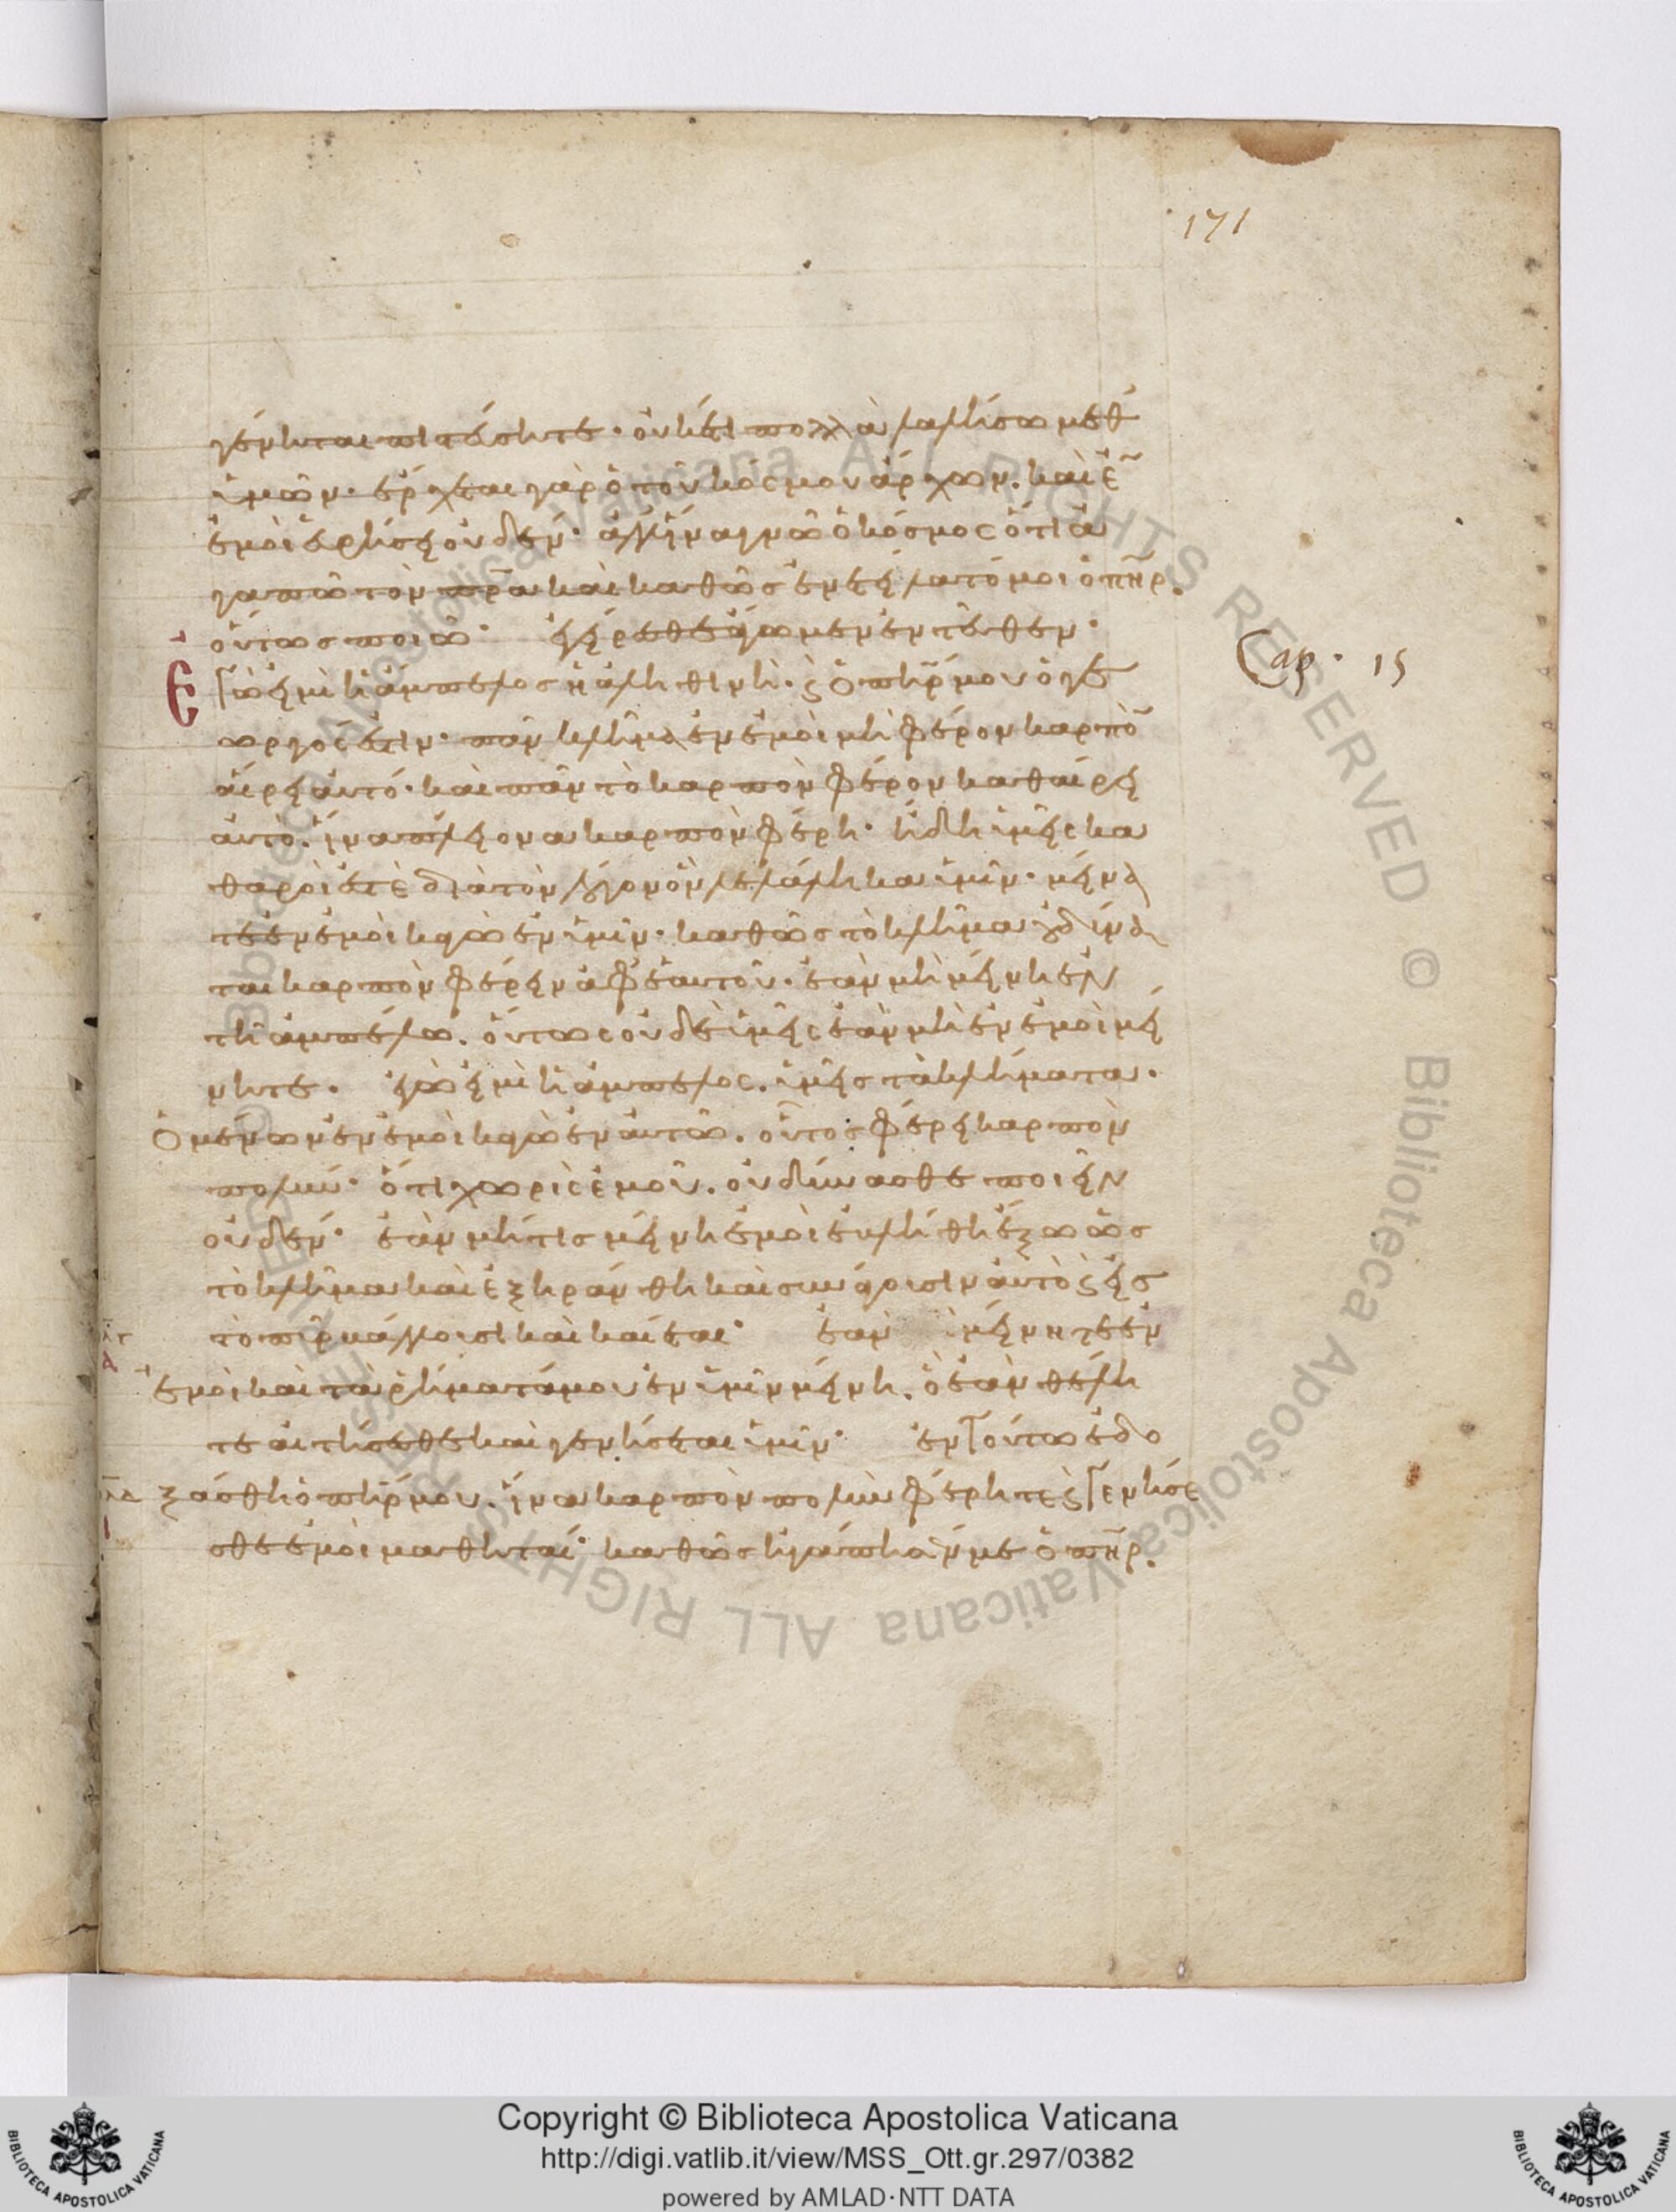 171
γένηται πιστεύσητε· οὐκέτι πολλὰ λαλήσω μεθ᾽
ὑμῶν· ἔρχεται γὰρ ὁ τοῦ κόσμου ἄρχων. καὶ ἐ̅
ἐμοὶ εὑρήσει οὐδέν· ἀλλ᾽ ἵνα γνῶ ὁ κόσμος ὅτι ἀ
γαπῶ τὸν πρ̅α καὶ καθὼς ἐνετείλατό μοι ὁ πη̅ρ.
οὕτως ποιῶ· ἐγείρεσθε ἄγωμεν ἐντεῦθεν·
Ἐγώ εἰμι ἡ ἄμπελος ἡ ἀληθινή. ϗ ὁ πη̅ρ μου ὁ γε
ωργός ἐστιν· πᾶν κλῆμα ἐν ἐμοὶ μὴ φέρον καρπὸ̅
αἴρει αὐτό· καὶ πᾶν τὸ καρπὸν φέρον καθαίρει
αὐτὸ. ἵνα πλείονα καρπὸν φέρη· ἤδη ὑμεῖς κα
θαροί ἐστε διὰ τὸν λόγον ὃν λελάληκα ὑμῖν· μείνα
τε ἐν ἐμοὶ κἀγὼ ἐν ὑμῖν· καθὼς τὸ κλῆμα οὐ δύνα
ται καρπὸν φέρειν ἀφ᾽ ἑαυτοῦ· ἐὰν μὴ μείνη ἐν
τῆ ἀμπέλω. οὕτως οὐδὲ ὑμεῖς ἐὰν μὴ ἐν ἐμοὶ μεί
νητε. ἐγώ εἰμι ἡ ἄμπελος. ὑμεῖς τὰ κλήματα.
Ὁ μένων ἐν ἐμοὶ κἀγὼ ἐν αὐτῶ. οὗτος φέρει καρπὸν
πολύν· ὅτι χωρὶς ἐμοῦ. οὐ δύνασθε ποιεῖν
οὐδέν· ἐὰν μή τις μείνη ἐμοὶ ἐβλήθη ἔξω ὡς
τὸ κλῆμα καὶ ἐξηράνθη καὶ συνάγουσιν αὐτὸ ϗ εἰς
τὸ πῦρ βάλλουσι καὶ καίεται· ἐὰν μείνητε ἐν
ἐμοὶ καὶ τὰ ῥήματά μου ἐν ὑμῖν μείνη. ὃ ἐὰν θέλη
τε αἰτήσεσθε καὶ γενήσεται ὑμῖν· ἐν τούτω ἐδο
ξάσθη ὁ πη̅ρ μου. ἵνα καρπὸν πολὺν φέρητε ϗ γενήσε
σθε ἐμοὶ μαθηταί· καθὼς ἠγάπησέν με ὁ πη̅ρ.
Cap. 15
Copyright © Biblioteca Apostolica Vaticana
http://digi.vatlib.it/view/MSS_Ott.gr.297/0382
powered by AMLAD·NTT DATA
BIBLIOTECA APOSTOLICA VATICANA
BIBLIOTECA APOSTOLICA VATICANA
© Biblioteca Apostolica Vaticana ALL RIGHTS RESERVED © Biblioteca Apostolica Vaticana ALL RIGHTS RESERVED